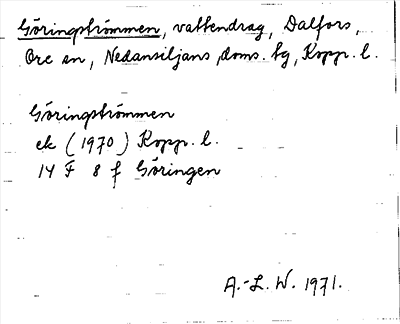 Göringströmmen, vattendrag, Dalfors,
Ore sn, Nedansiljans doms. tg, Kopp. l.
Göringströmmen
ek (1970) Kopp. l.
14 F 8 f Göringen
A.-L. W. 1971.